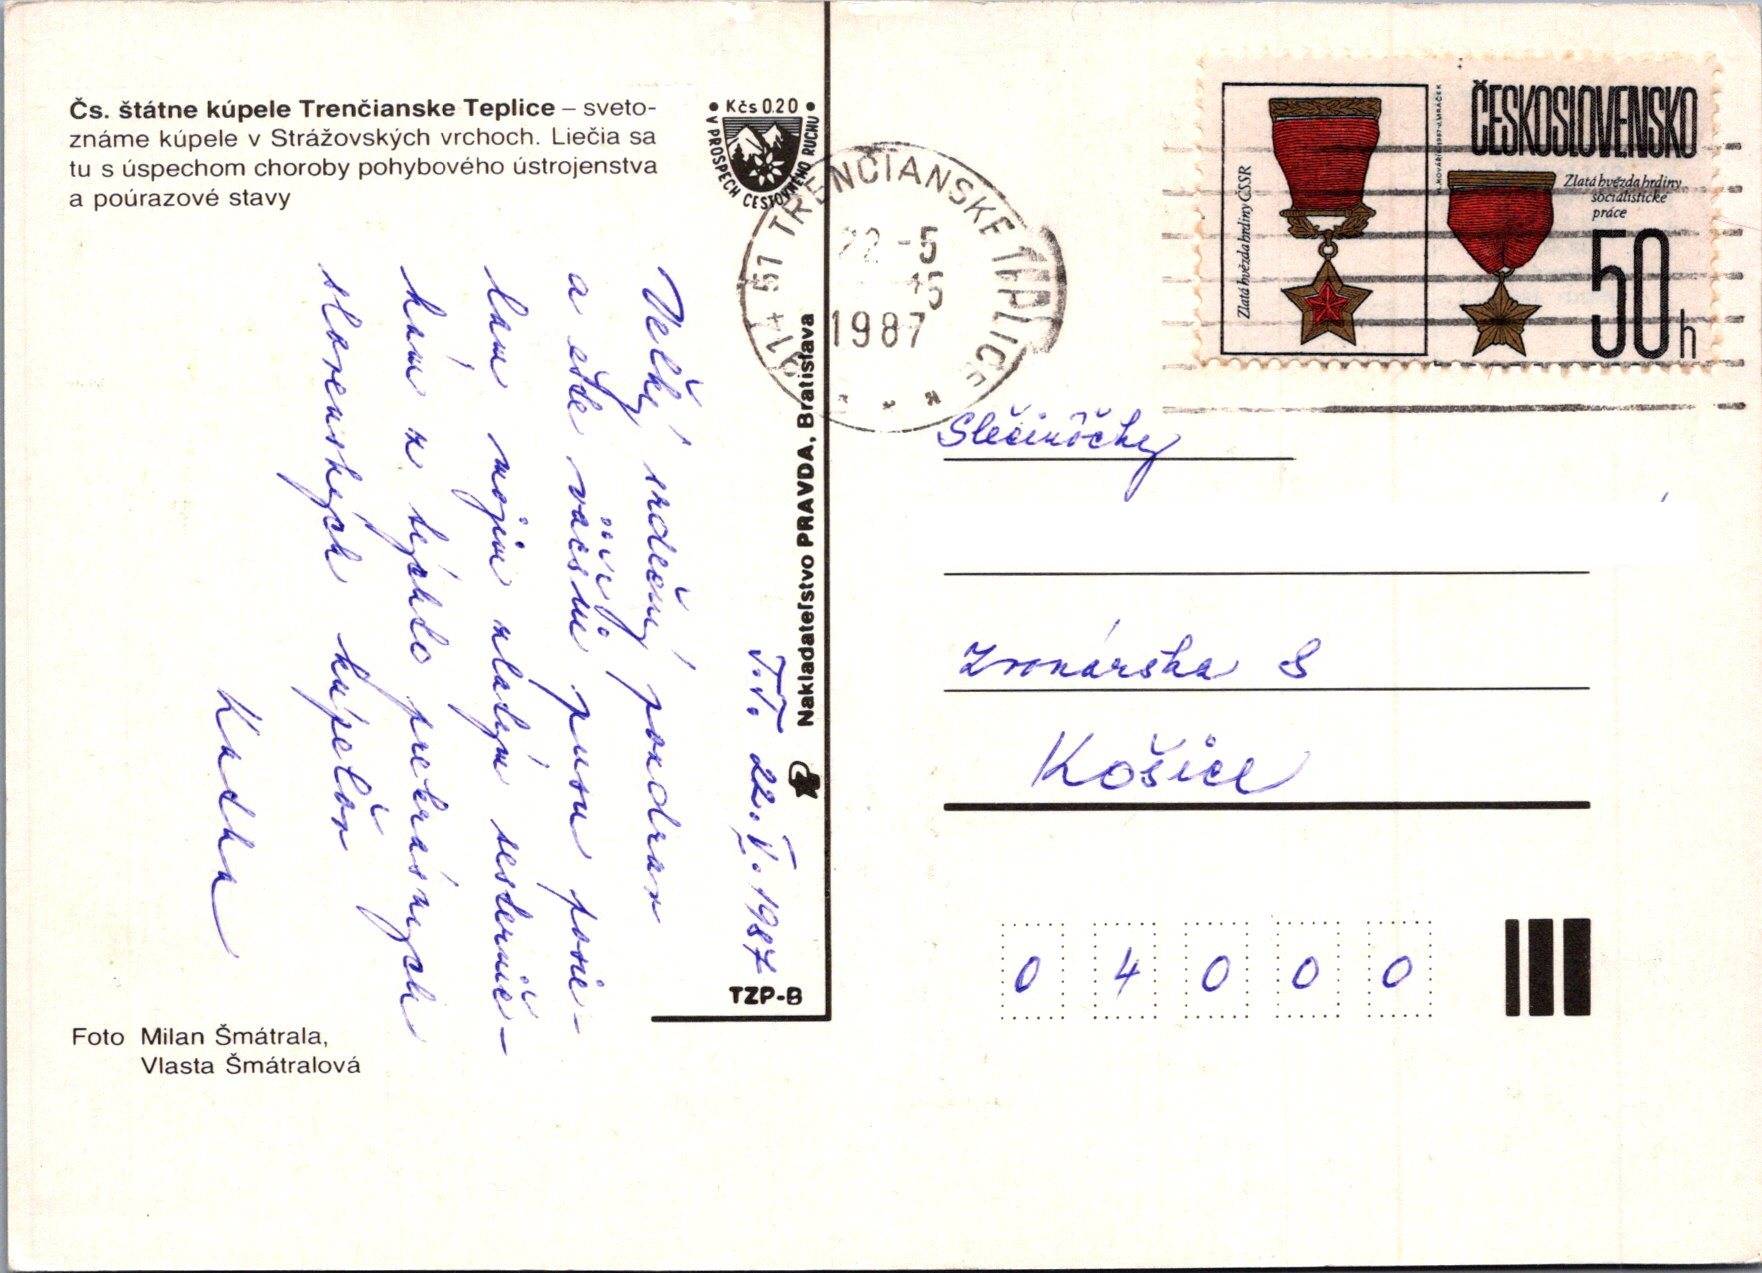 Čs. štátne kúpele Trenčianske Teplice – sveto-
známe kúpele v Strážovských vrchoch. Liečia sa
tu s úspechom choroby pohybového ústrojenstva
a poúrazové stavy
Kčs 0.20
V PROSPECH CESTOVNÉHO RUCHU
914 57 TRENČIANSKE TEPLICE
22 -5
1987
Zlatá hvězda hrdiny ČSSR
ČESKOSLOVENSKO
Zlatá hvězda hrdiny
socialistické
práce
50h
T.T. 22.V.1987
Veľký srdečný pozdrav
a ešte väčšiu pusu posie-
lam mojim zlatým sesternič-
kám z týchto prekrásnych
slovenských kúpeľov
Katka
Nakladateľstvo PRAVDA, Bratislava
TZP-B
Foto Milan Šmátrala,
Vlasta Šmátralová
Slečinôčky
Zvonárska 8
Košice
0 4 0 0 0